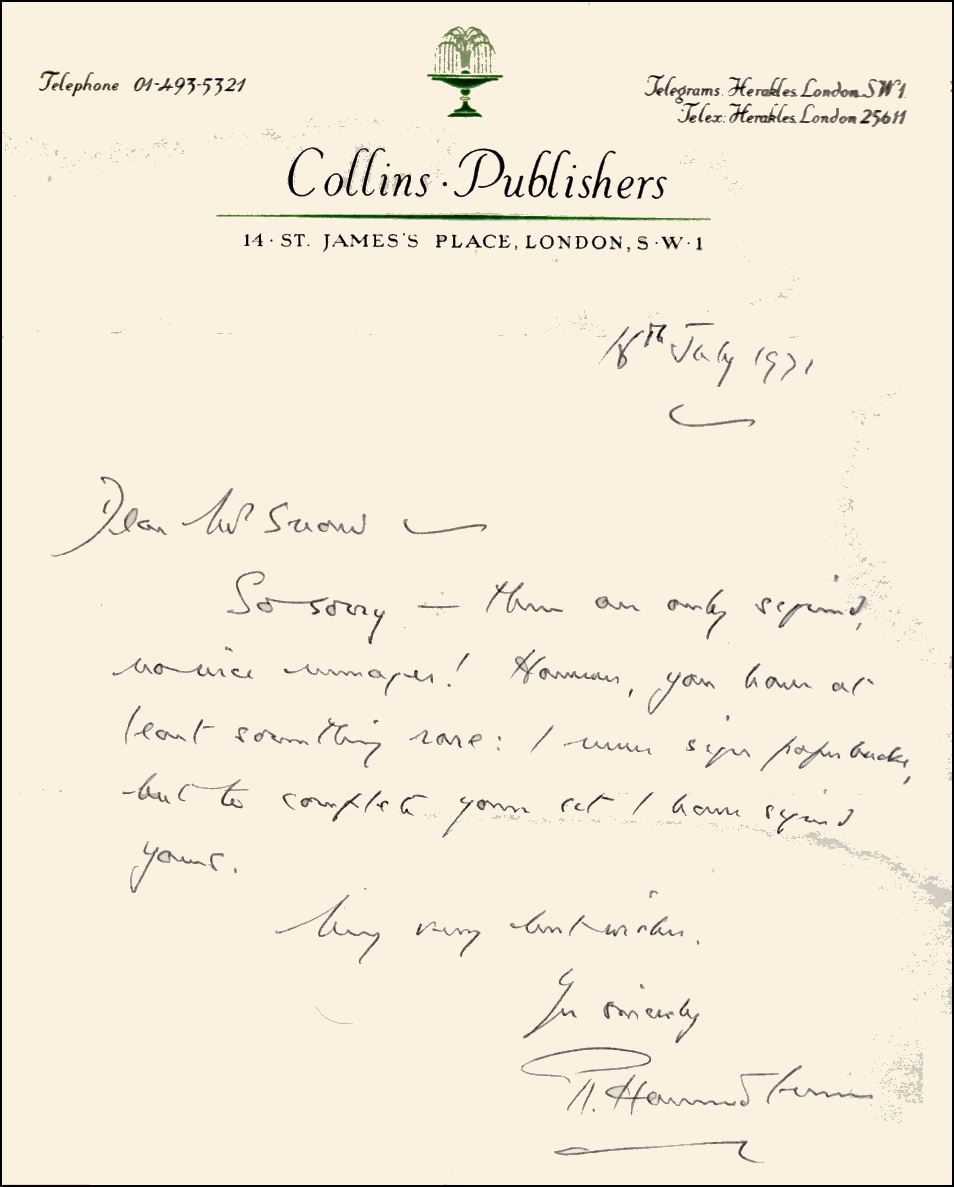 Telephone 01-493-5321
Telegrams. Herakles. London. SW1.
Telex: Herakles. London 25611
Collins · Publishers
14 · ST. JAMES'S PLACE, LONDON, S · W · 1
July 1971
Dear Mr Snow
So sorry — there are only signed,
no nice images! However, you have at
least something rare: I never sign paperbacks,
but to complete your set I have signed
yours.
My very best wishes.
Yrs sincerely
Hammond Innes